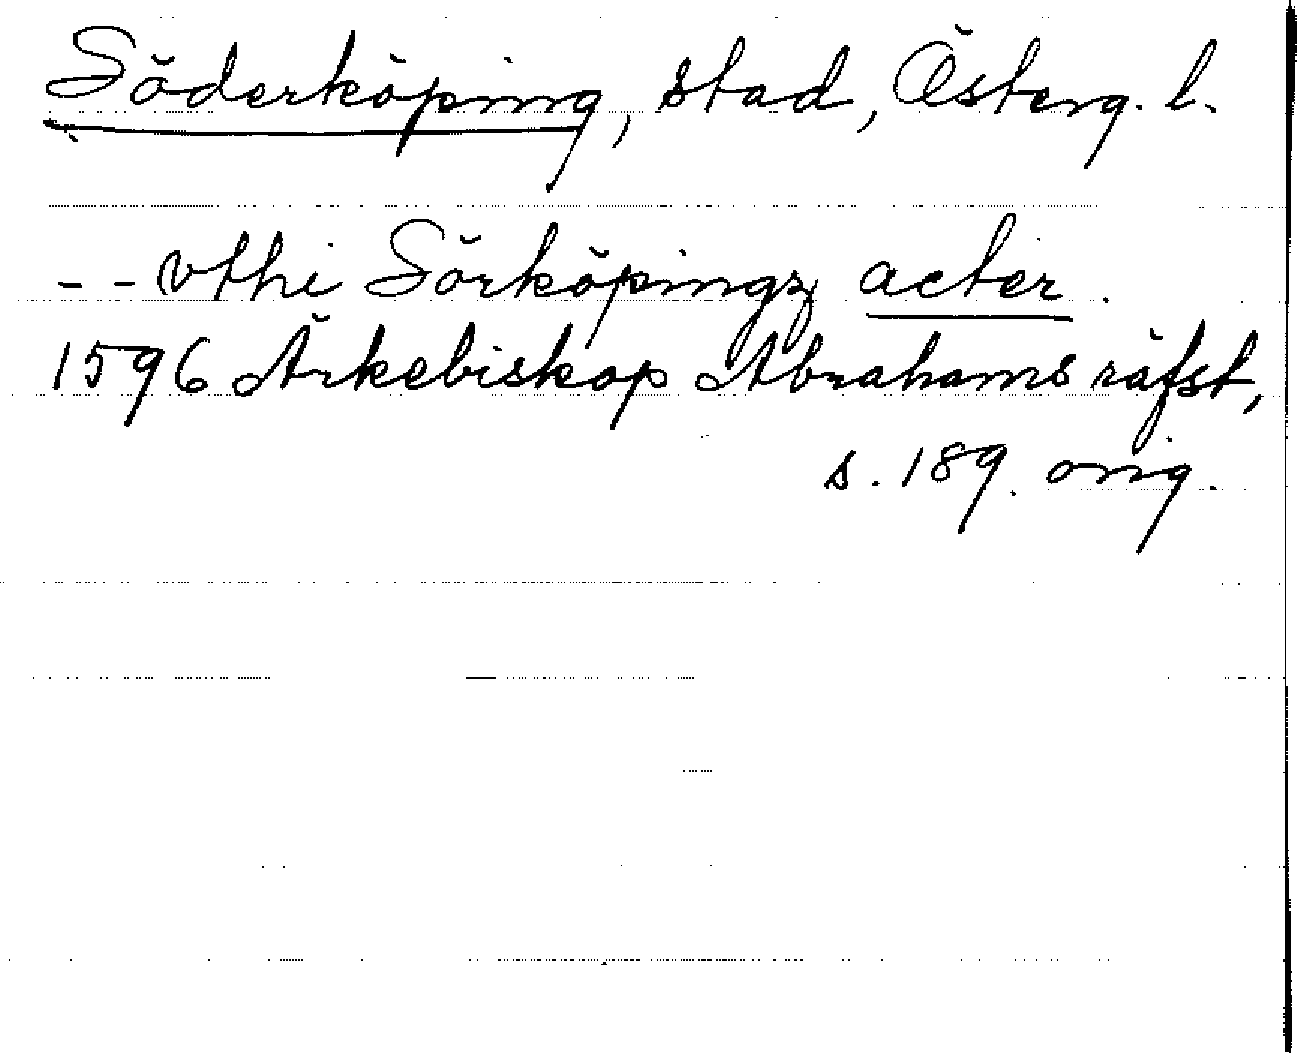 Söderköping, stad, Österg. l.
- - vthi Sörköpingz acter.
1596 Ärkebiskop Abrahams räfst,
s. 189. orig.